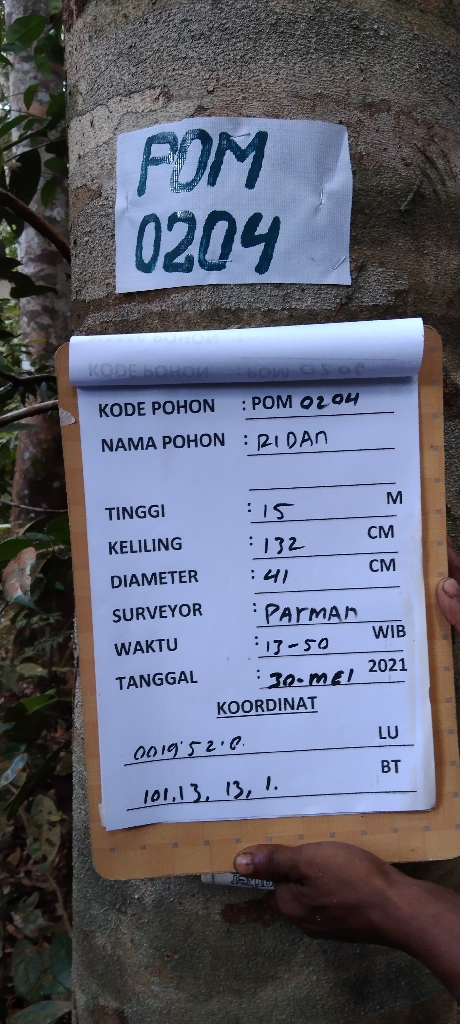 POM
0204
KODE POHON : POM 0204
NAMA POHON : RIDAN
TINGGI : 15 M
KELILING : 132 CM
DIAMETER : 41 CM
SURVEYOR : PATMAN
WAKTU : 13-50 WIB
TANGGAL : 30-MEI 2021
KOORDINAT
0019'52.0. LU
101.13, 13, 1. BT